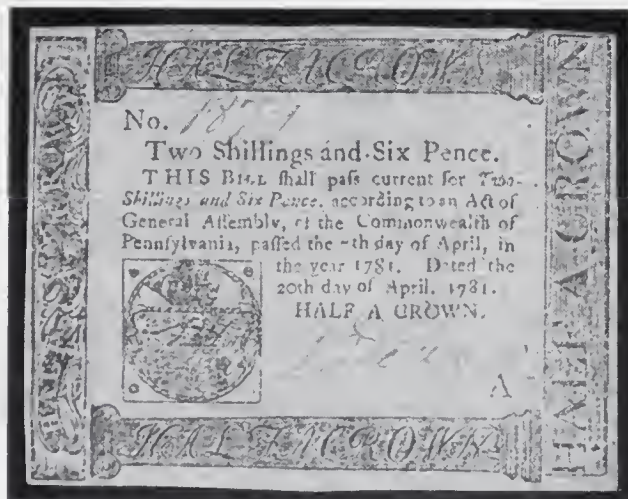 HALF A CROWN
No.
Two Shillings and Six Pence.
THIS BILL ſhall paſs current for Two
Shillings and Six Pence, according to an Act of
General Aſſembly, of the Commonwealth of
Pennſylvania, paſſed the 7th day of April, in
the year 1781. Dated the
20th day of April, 1781.
HALF A CROWN.
A
HALF A CROWN
HALF A CROWN